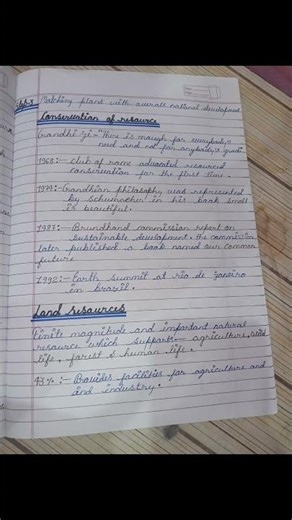 Matching plans with overall national development
Conservation of resource
Gandhi ji - "There is enough for everybody's
need and not for anybody's greed"
1968:- club of rome advocated resource
conservation for the first time.
1974:- Gandhian philosophy was represented
by Schumacher in his book Small
is beautiful.
1987:- Brundhand commission report on
sustainable development. The commission
later published a book named our common
future
1992:- Earth summit at Rio de Janeiro
in brazil.
Land resources
Finite magnitude and important natural
resource which supports - agriculture, wild
life, forest & human life.
43%:- Provides facilities for agriculture and
and industry.